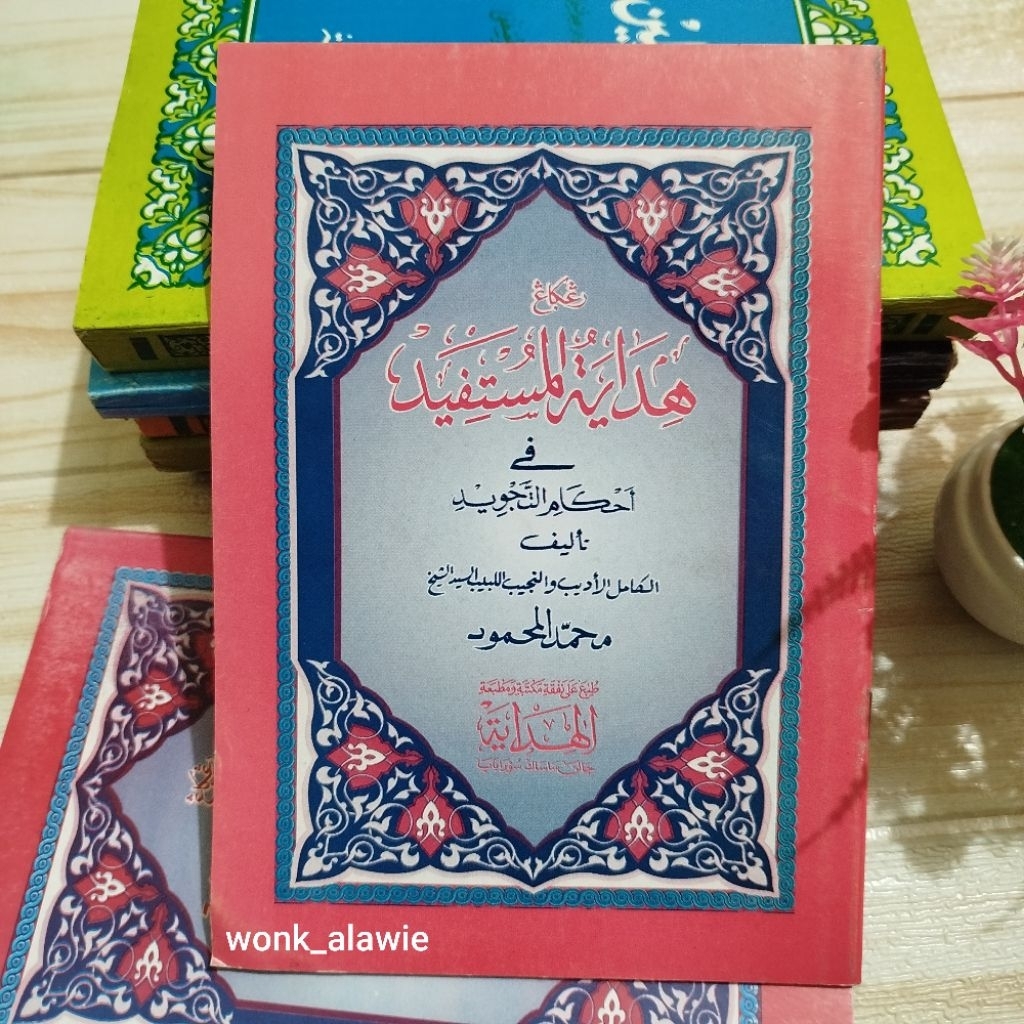 هِدَايَةُ المُسْتَفِيْدِ
فِي
أَحْكَامِ التَّجْوِيْدِ
تأليف
الكامل الأديب والنجيب اللبيب السيد الشيخ
محمّد المحمود
طُبِعَ عَلَى نَفْقَةِ مَكْتَبَةِ وَمَطْبَعَةِ
الهِدَايَة
wonk_alawie